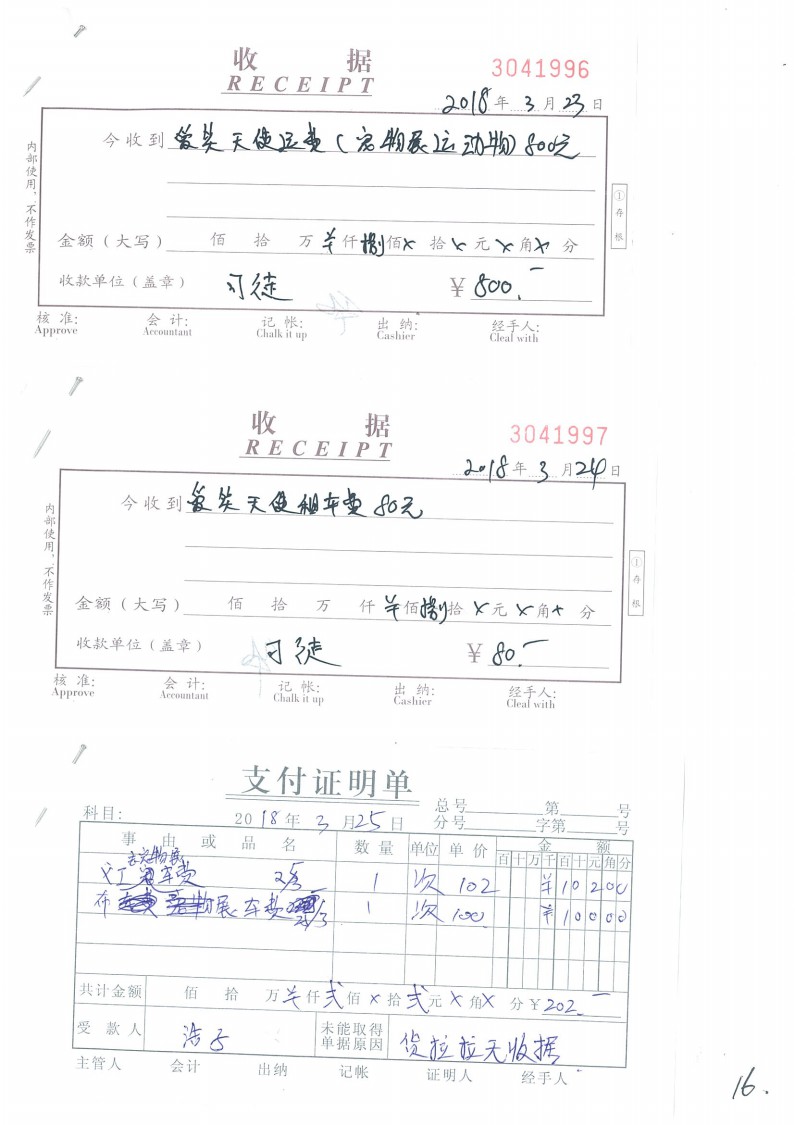 收 据
RECEIPT
3041996
2018年3月23日
今收到 爱笑天使运费(宠物展运动物)800元
金额(大写) 佰 拾 万 羊仟捌佰x拾x元x角x分
收款单位(盖章) 习徒 ¥800.-
内部使用,不作发票
①存根
核 准: 会 计: 记 帐: 出 纳: 经手人:
Approve Accountant Chalk it up Cashier Cleal with
收 据
RECEIPT
3041997
2018年3月24日
今收到 爱笑天使租车费80元
金额(大写) 佰 拾 万 仟羊佰捌拾x元x角x分
收款单位(盖章) 习徒 ¥80.-
内部使用,不作发票
①存根
核 准: 会 计: 记 帐: 出 纳: 经手人:
Approve Accountant Chalk it up Cashier Cleal with
支付证明单
科目: 2018年3月25日 总号 第 号
分号 字第 号
事 由 或 品 名 数 量 单位 单 价 金 额
百十万千百十元角分
宠物展
义工 车费 25/3 1 次 102 ¥10200
布 物展车费 /3 1 次 100 ¥10000
共计金额 佰 拾 万羊仟贰佰x拾贰元x角x分¥202.-
受 款 人 浩子 未能取得单据原因 货拉拉无收据
主管人 会计 出纳 记帐 证明人 经手人
16.